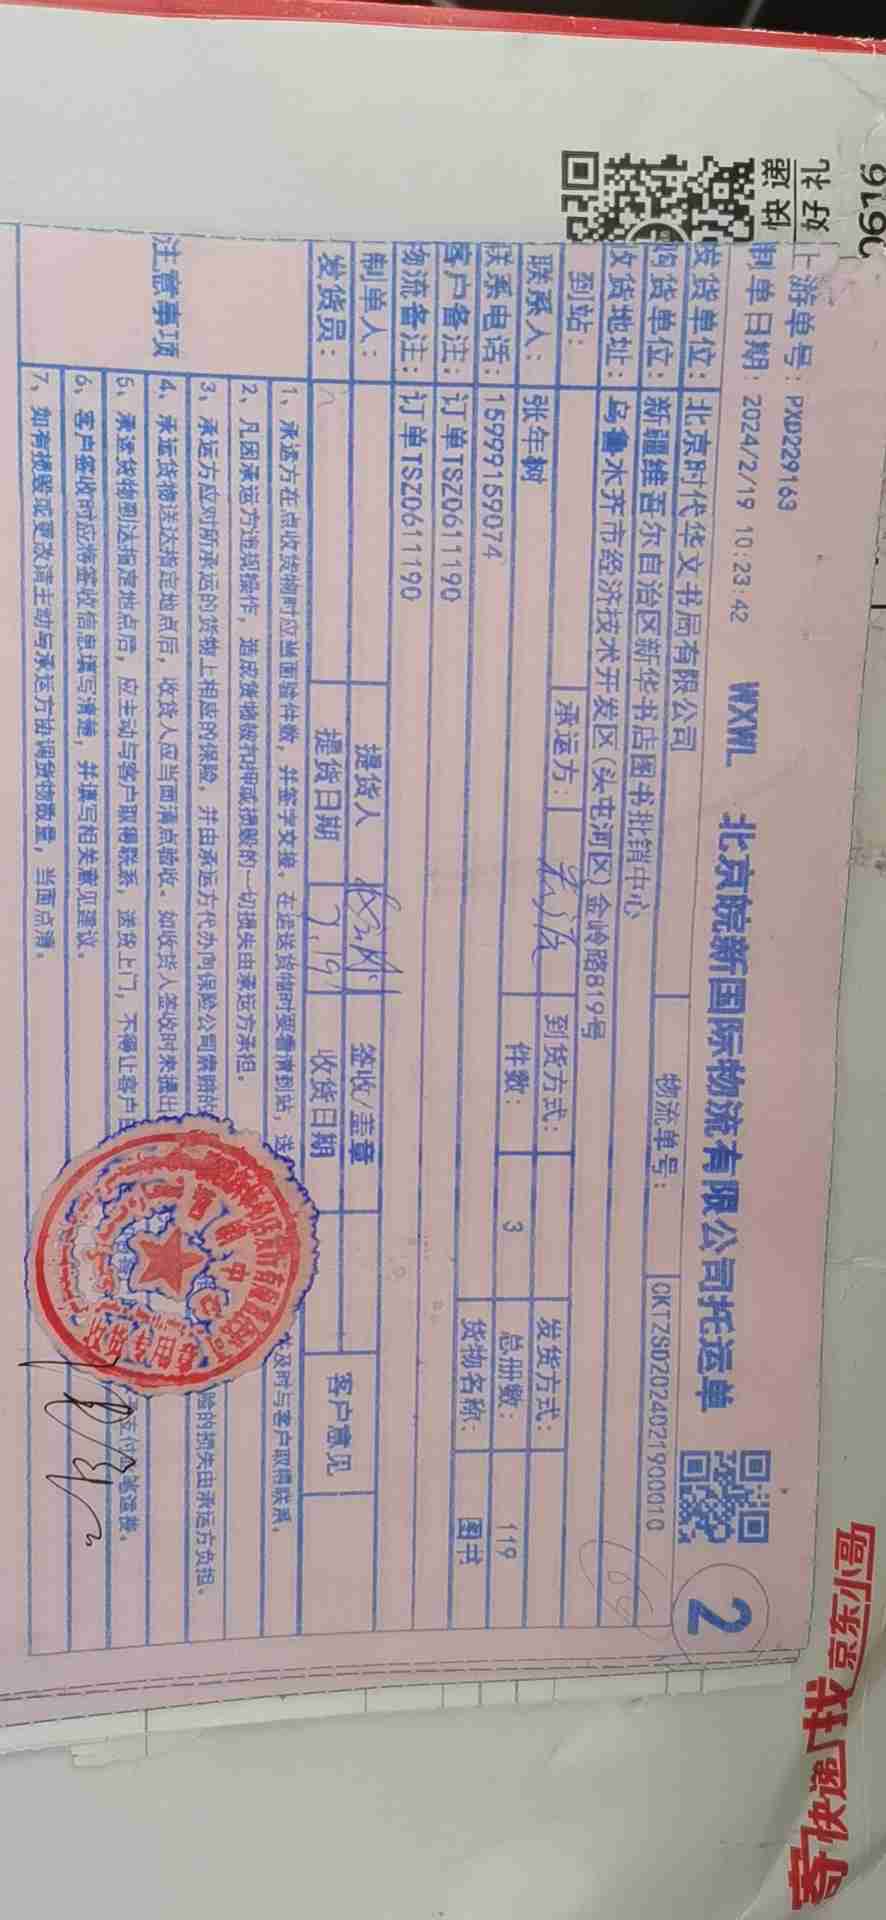 快递
好礼
上游单号：PXD229163
制单日期：2024/2/19 10:23:42
WXWL 北京皖新国际物流有限公司托运单
2
发货单位：北京时代华文书局有限公司
物流单号：CKTZSD2024021900010
购货单位：新疆维吾尔自治区新华书店图书批销中心
收货地址：乌鲁木齐市经济技术开发区(头屯河区)金岭路819号
到站：
承运方：
到货方式：
发货方式：
联系人：张年树
件数：3
总册数：119
联系电话：15999159074
货物名称：图书
客户备注：订单TSZ0611190
物流备注：订单TSZ0611190
制单人：
提货人
签收/盖章
客户意见
发货员：
提货日期
收货日期
注意事项
1、承运方在点收货物时应当面验件数，并签字交接。在运送货物时要看清到站，送
及时与客户取得联系。
2、凡因承运方违规操作，造成货物被扣押或损毁的一切损失由承运方承担。
3、承运方应对所承运的货物上相应的保险，并由承运方代办向保险公司索赔的
险的损失由承运方负担。
4、承运货物送达指定地点后，收货人应当面清点验收。如收货人签收时未提出
5、承运货物到达指定地点后，应主动与客户取得联系，送货上门，不得让客户自
6、客户签收时应将签收信息填写清楚，并填写相关意见建议。
7、如有损毁或更改请主动与承运方协调货物数量，当面点清。
寄快递 找京东小哥